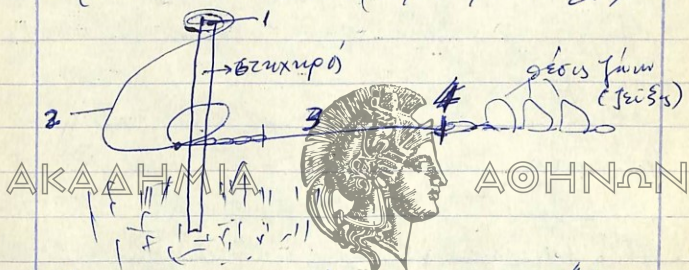 1
στυχηρός
θέσις ζώων
(ζεῦξις)
2
3
4
ΑΚΑΔΗΜΙΑ ΑΘΗΝΩΝ